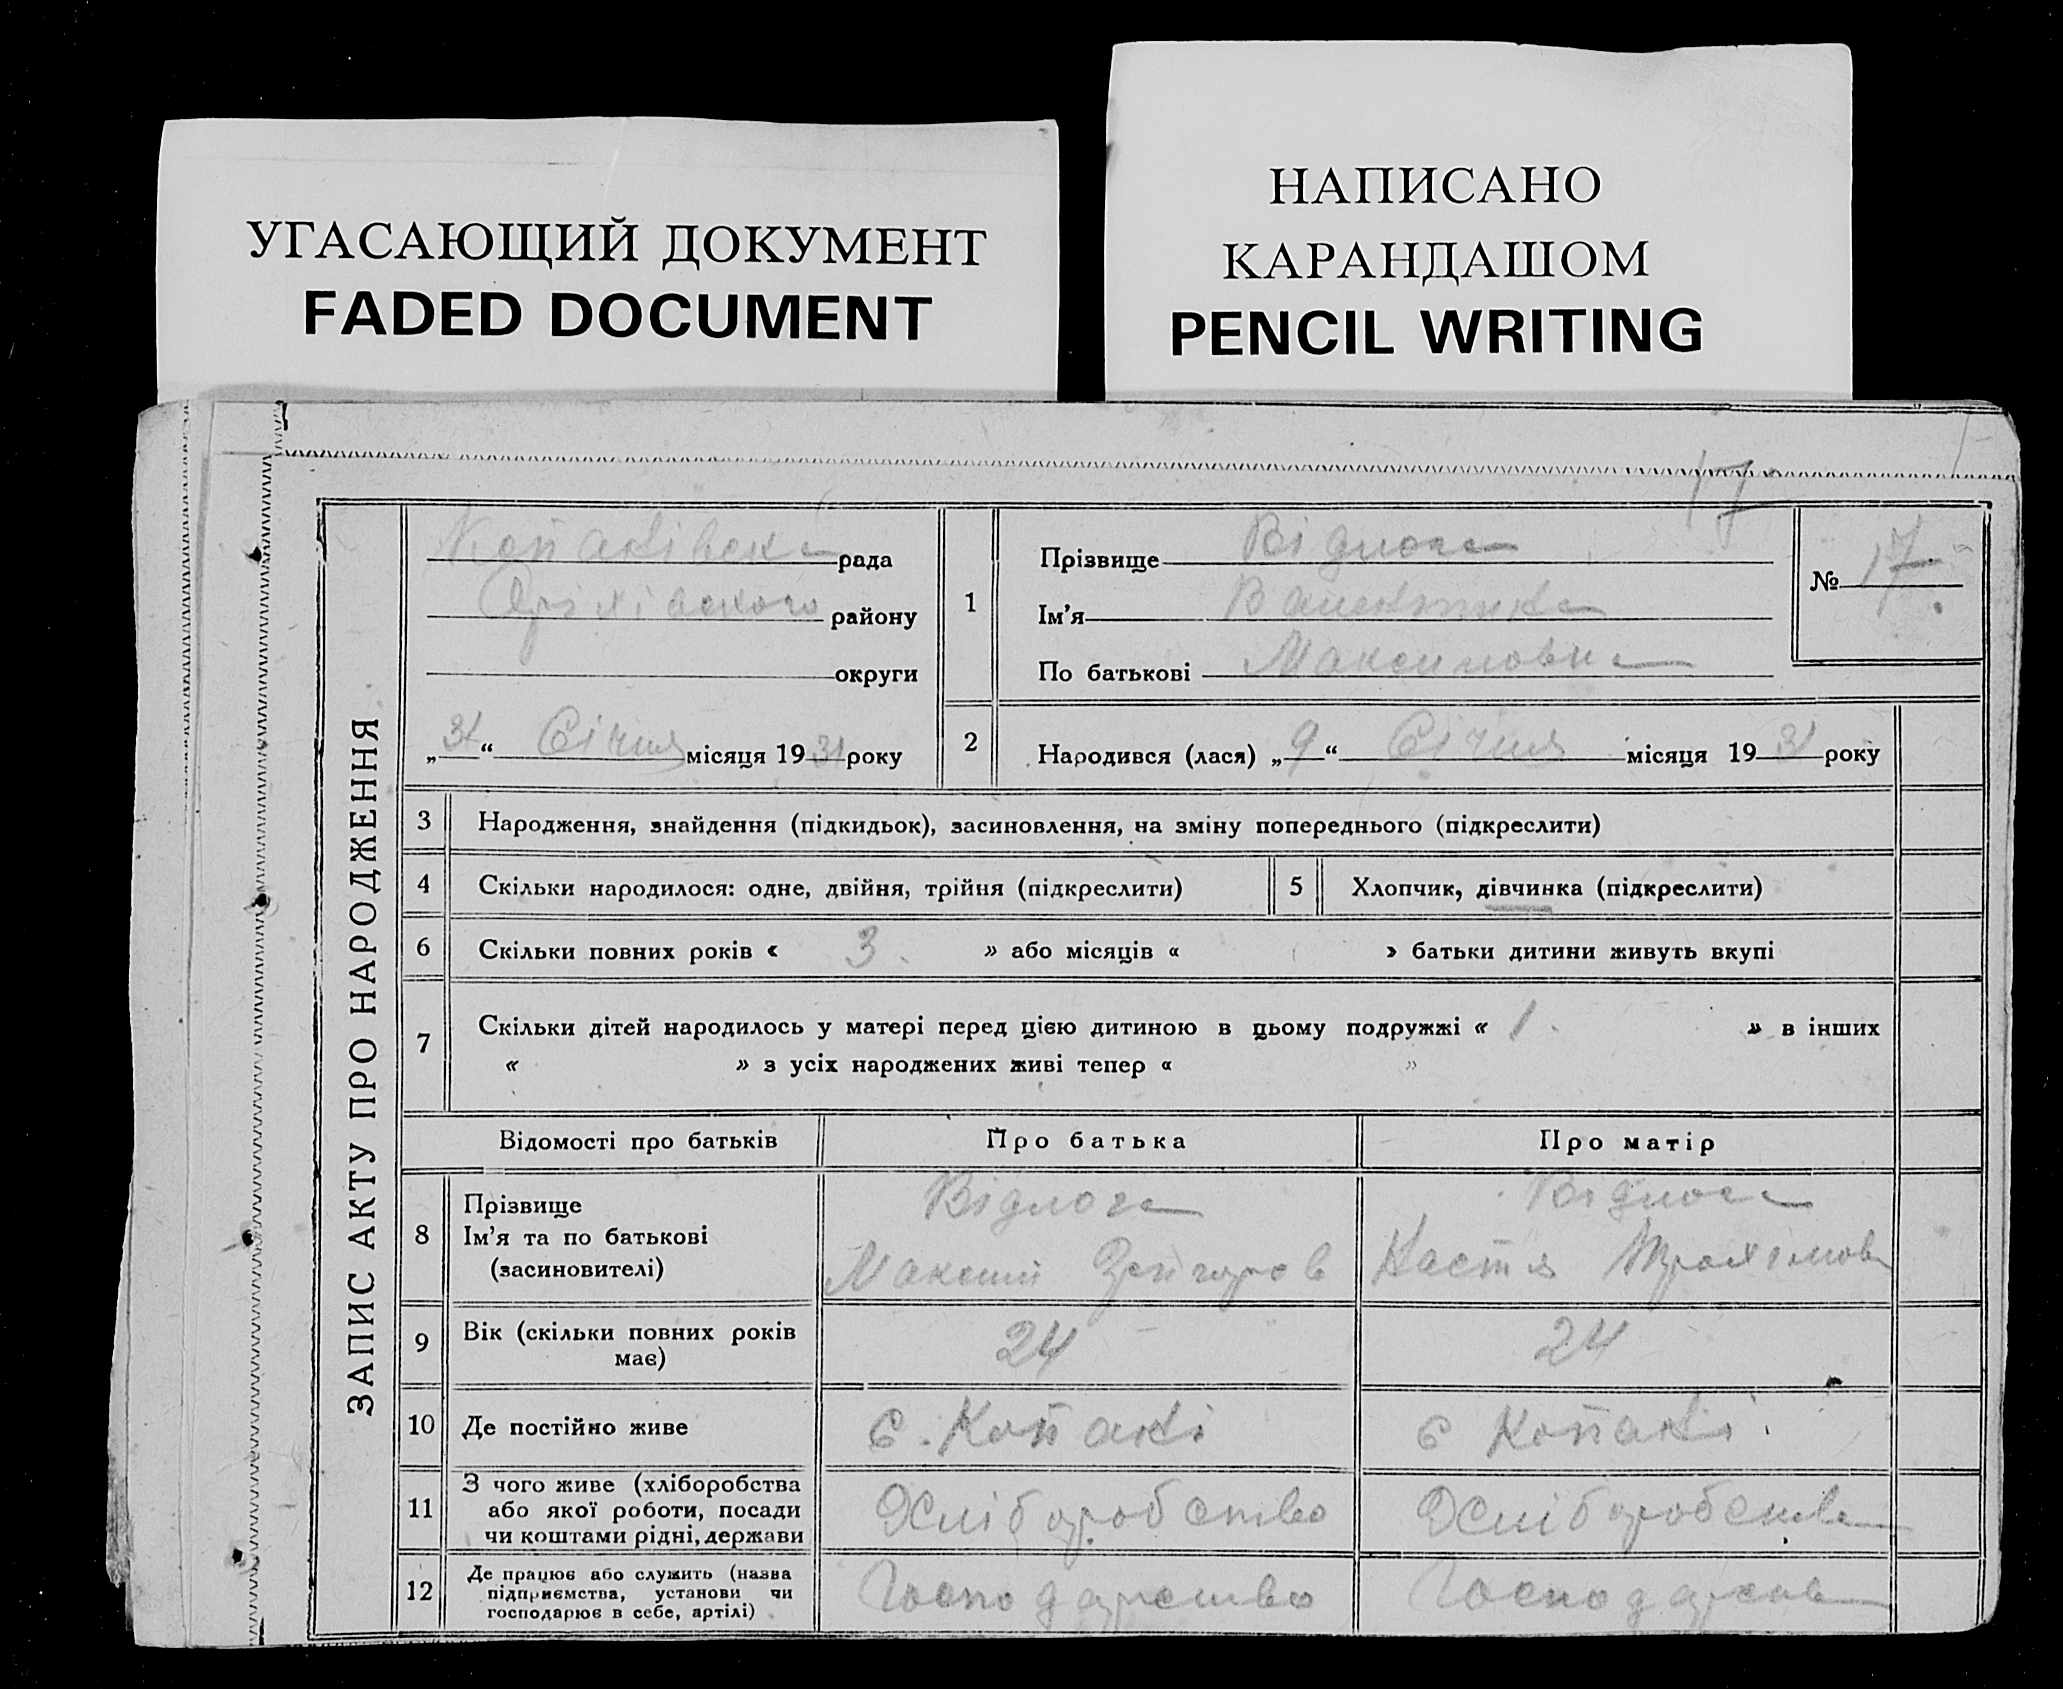 УГАСАЮЩИЙ ДОКУМЕНТ
FADED DOCUMENT
НАПИСАНО
КАРАНДАШОМ
PENCIL WRITING
17
ЗАПИС АКТУ ПРО НАРОДЖЕННЯ
Копаківська рада
Оріхівського району
округи
„31“ Січня місяця 1931 року
1
Прізвище Відлога
Ім’я Валентина
По батькові Максимовна
№ 17.
2 Народився (лася) „9“ Січня місяця 1931 року
3 Народження, знайдення (підкидьок), засиновлення, на зміну попереднього (підкреслити)
4 Скільки народилося: одне, двійня, трійня (підкреслити) 5 Хлопчик, дівчинка (підкреслити)
6 Скільки повних років « 3. » або місяців « » батьки дитини живуть вкупі
7 Скільки дітей народилось у матері перед цією дитиною в цьому подружжі « 1. » в інших
« » з усіх народжених живі тепер « »
Відомості про батьків Про батька Про матір
8 Прізвище Відлога Відлога
Ім’я та по батькові
(засновителі) Максим Настя
9 Вік (скільки повних років 24 24
має)
10 Де постійно живе с. Копакі с Копакі.
11 З чого живе (хліборобства
або якої роботи, посади Хліборобство Хліборобств
чи коштами рідні, держави
12 Де працює або служить (назва
підприємства, установи чи Господарство Господарсв
господарює в себе, артілі)